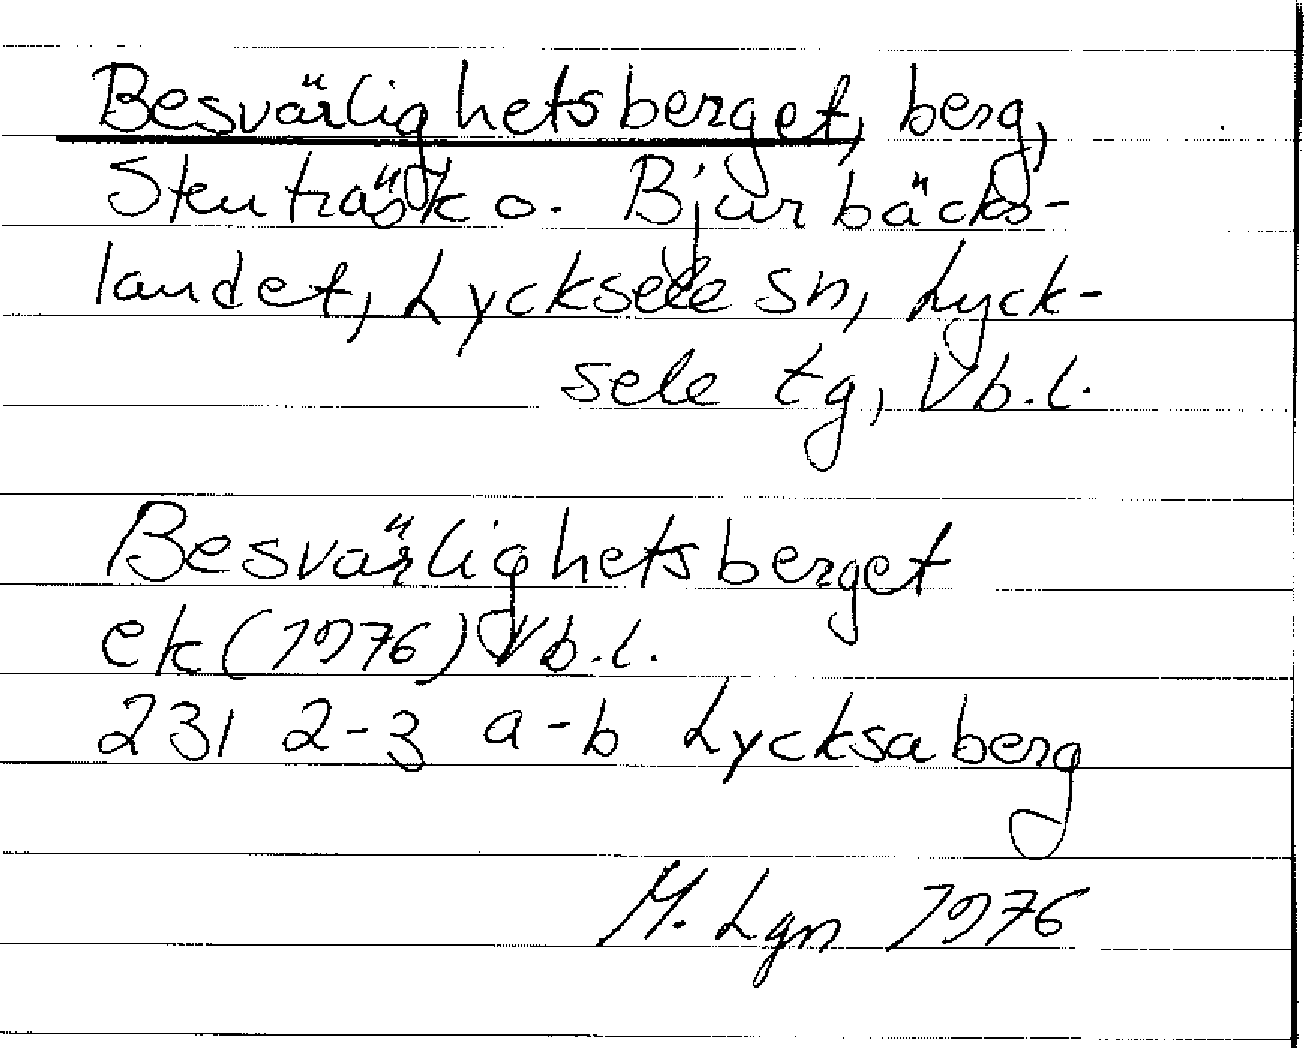 Besvärlighetsberget, berg,
Stenträsk o. Bjurbäcks-
landet, Lycksele sn, Lyck-
sele tg, Vb.l.
Besvärlighetsberget
ek (1976) Vb.l.
231 2-3 a-b Lycksaberg
M. Lgn 1976